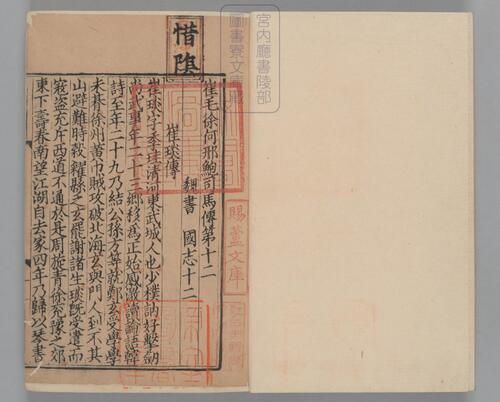 宮内廳書陵部
圖書寮文庫
惜陰
崔毛徐何邢鮑司馬傳第十二
魏書　國志十二
崔琰傳
崔琰字季珪清河東武城人也少樸訥好擊劒
尚武事年二十三鄉移爲正始感激讀論語韓
詩至年二十九乃結公孫方等就鄭玄受學學
未朞徐州黃巾賊攻破北海玄與門人到不其
山避難時穀糴縣乏玄罷謝諸生琰旣受遣而
寇盜充斥西道不通於是周旋青徐兖豫之郊
東下壽春南望江湖自去家四年乃歸以琴書
賜蘆文庫